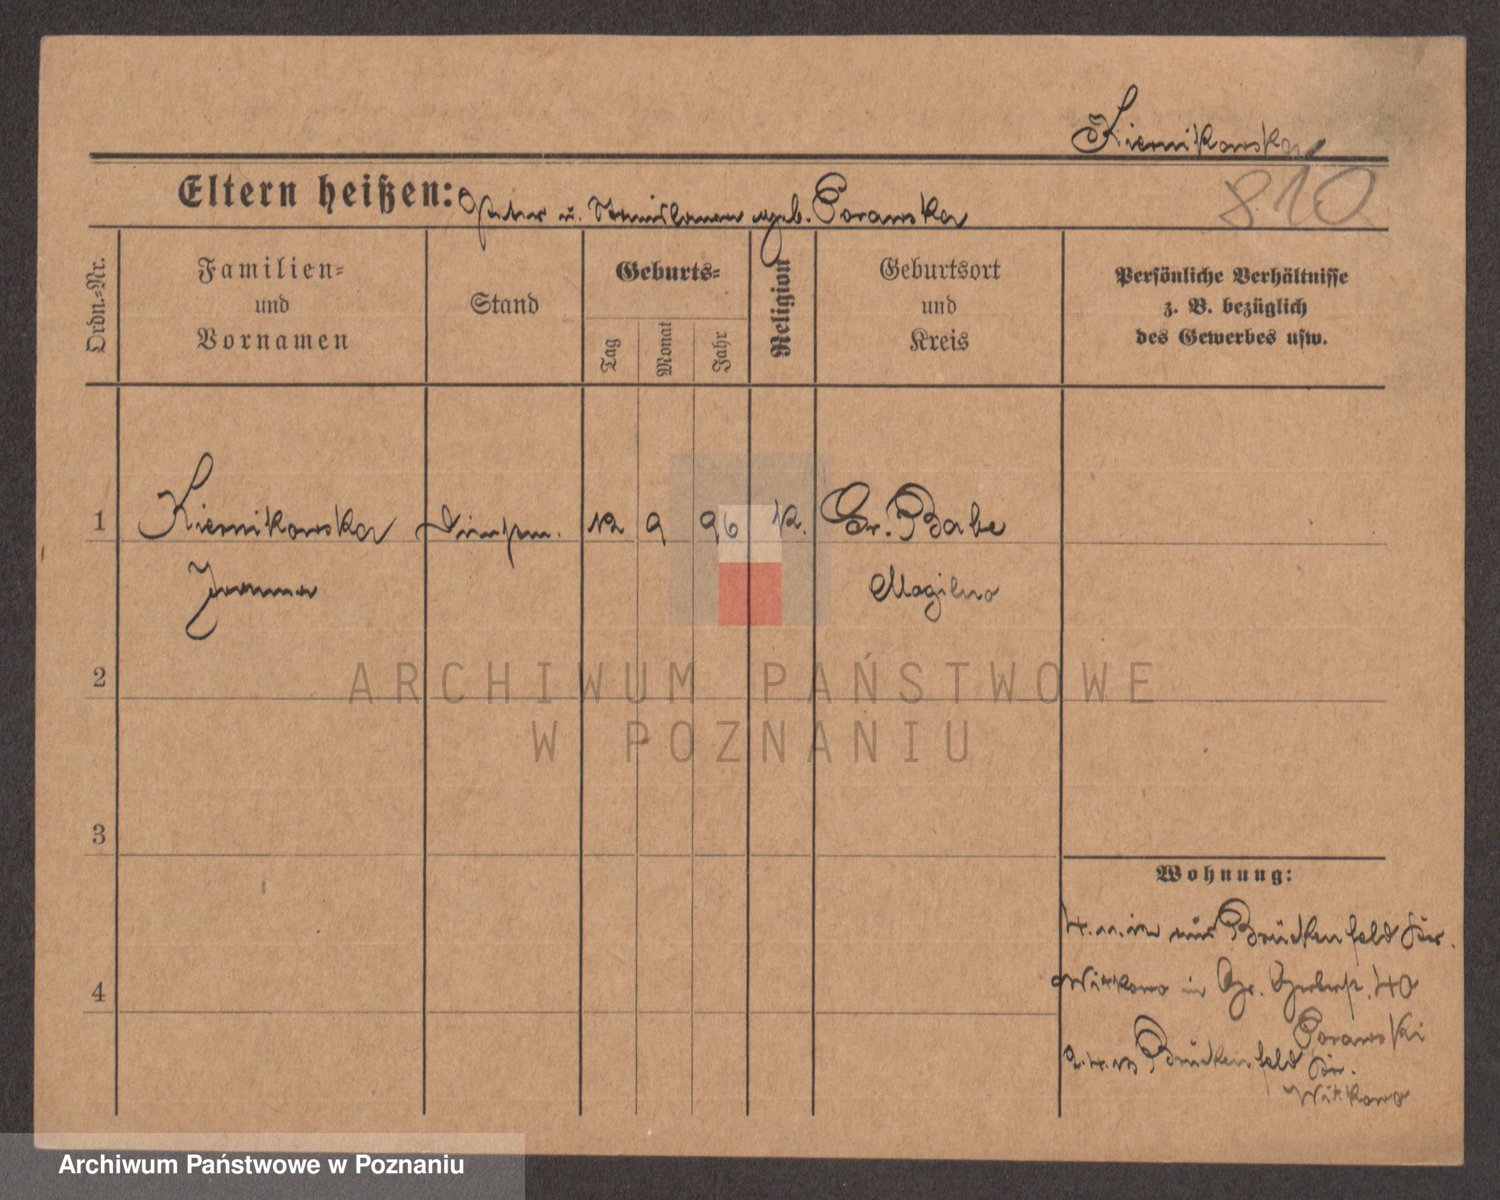 Kiernikowska
810
Eltern heißen: Peter u. Stanislawa geb. Porawska
Ordn.-Nr.
Familien-
und
Vornamen
Stand
Geburts-
Tag
Monat
Jahr
Religion
Geburtsort
und
Kreis
Persönliche Verhältnisse
z. B. bezüglich
des Gewerbes usw.
1 Kiernikowska 12 9 96 k. Gr. Babe
Mogilno
2
3
4
Wohnung:
aus Brückenfeld Kr.
Witkowo in Gr. 40
Porawski
Brückenfeld Kr.
Witkowo
ARCHIWUM PAŃSTWOWE
W POZNANIU
Archiwum Państwowe w Poznaniu